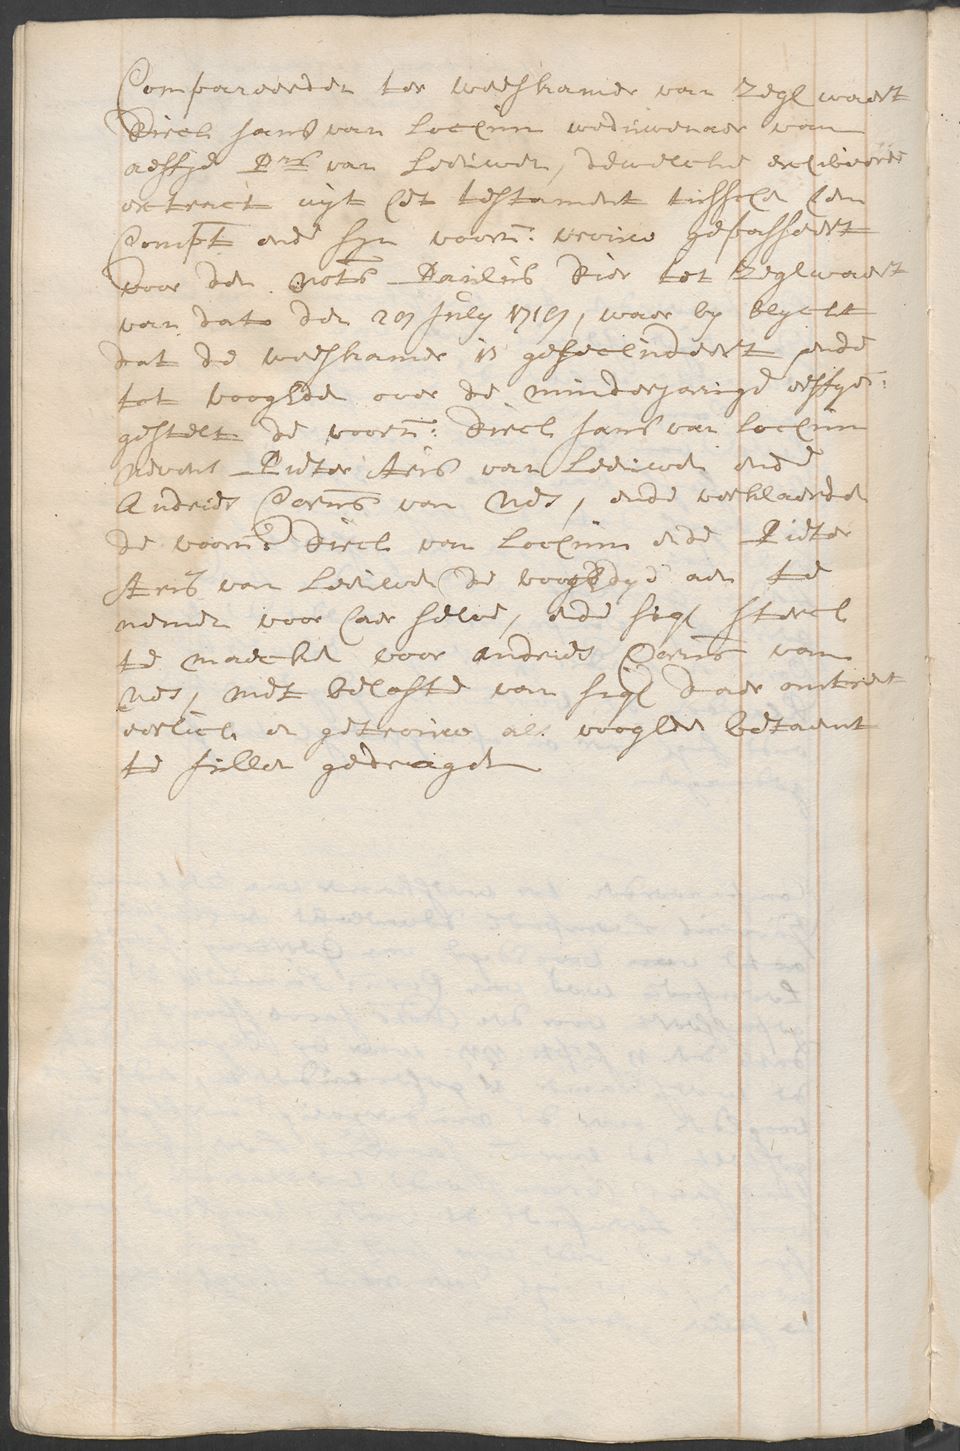 Compareerden ter weeskamer van Zeglwaert
Dirck Jans van Lockum weduwenaer van
aeftje P:rs van Leeuwen, dewelcke exhibeerde
extract uyt het testament tusschen hem
Compt ende syn voorn: vrouw gepasseert
voor den Nots Paulus Dier tot Zeglwaert
van dato den 29 July 1719, waer by blyckt
dat de weeskamer is gesecludeert ende
tot vooghde over de minderjarige
gestelt de voorn: Dirck Jans van Lockum
nevens Pieter Aris van Leeuwen ende
Andries Corns van Nes, ende verklaerde
de voorn: Dirck van Lockum ende Pieter
Aris van Leeuwen de vooghdye aen te
nemen voor haer selve, ende sigh sterck
te maecken voor Andries Corns van
Nes, met belofte van sigh daer omtrent
eerlick en getrouw als vooghden betaemt
te sullen gedragen